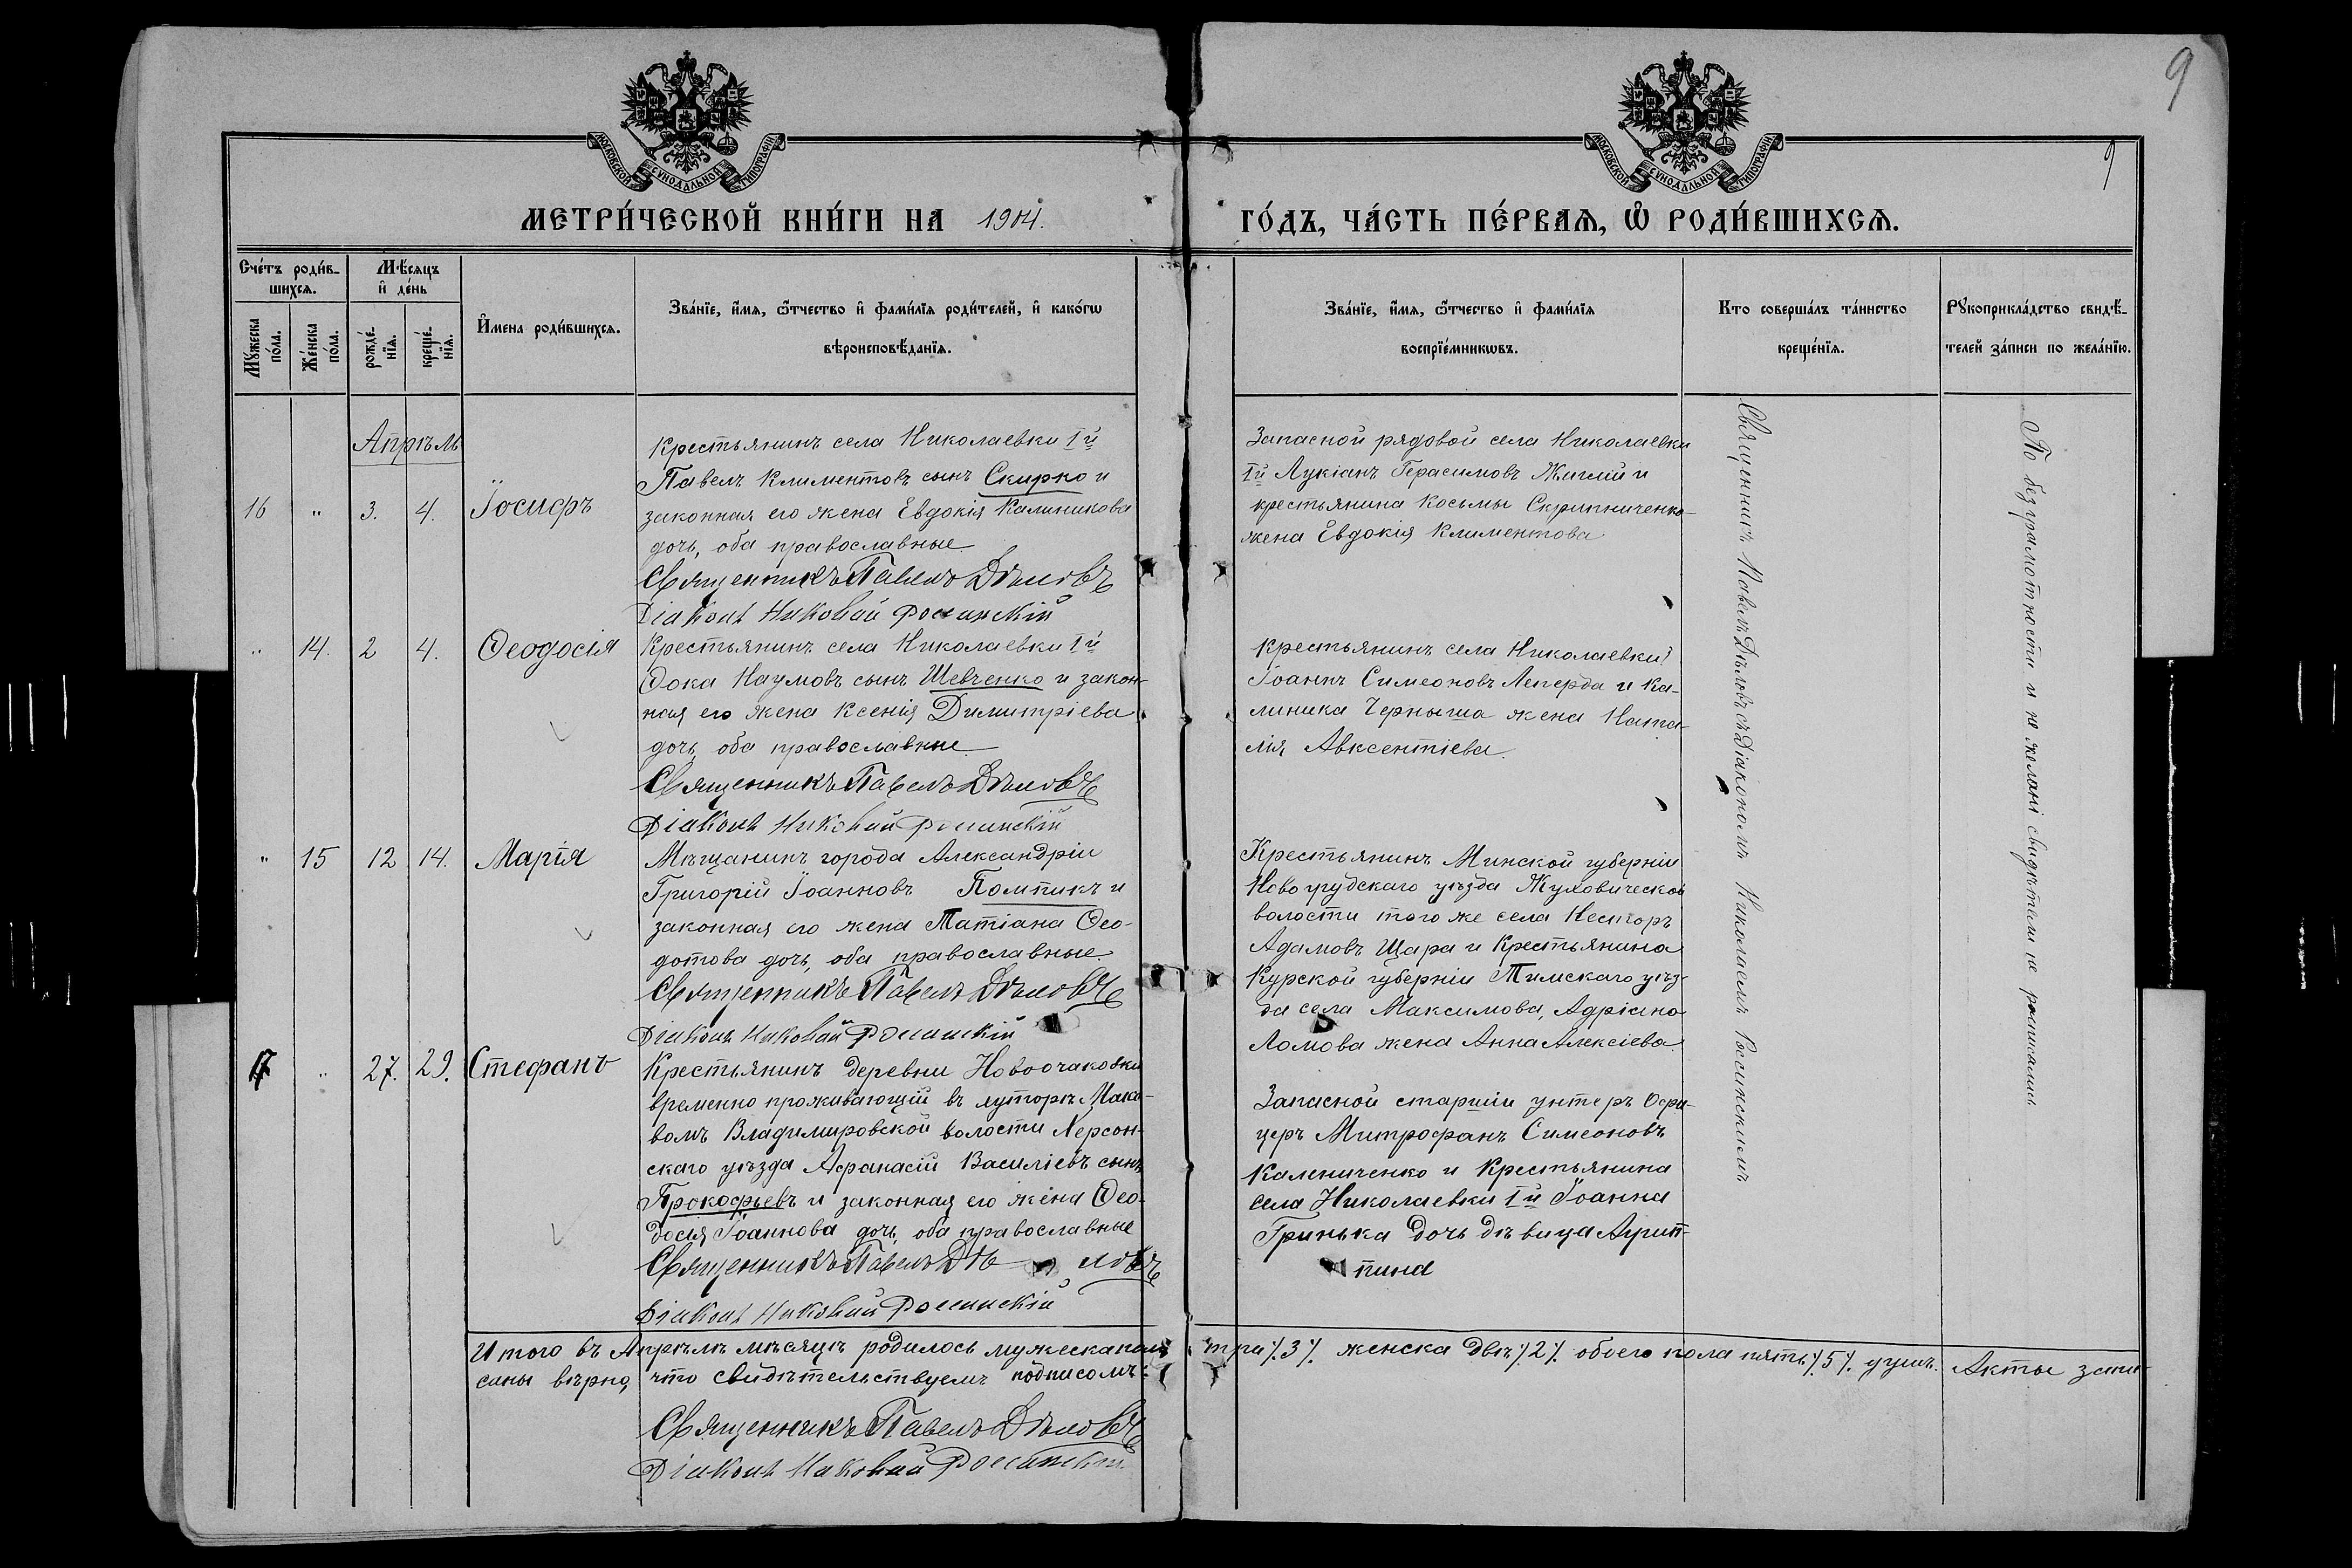 9
9
МОСКОВСКОЙ СУНОДАЛЬНОЙ ТИПОГРАФІИ
МОСКОВСКОЙ СУНОДАЛЬНОЙ ТИПОГРАФІИ
МЕТРИ́ЧЕСКОЙ КНИ́ГИ НА 1904.
ГО́ДЪ, ЧА́СТЬ ПЕ́РВАѦ, Ѽ РОДИ́ВШИХСѦ.
Сче́тъ роди́в-
шихсѧ.
Мꙋ́жеска по́ла.
Же́нска по́ла.
Мѣ́сяцъ
и҆ де́нь
рожде́-
нїѧ.
креще́-
нїѧ.
И҆мена роди́вшихсѧ.
Зва́нїе, и҆́мѧ, ѻ҆́тчество и҆ фами́лїѧ роди́телей, и҆ како́гѡ
вѣроисповѣ́данїѧ.
Зва́нїе, и҆́мѧ, ѻ҆́тчество и҆ фами́лїѧ
воспрїе́мникѡвъ.
Кто соверша́лъ та́инство
креще́нїѧ.
Рꙋкоприкла́дство свидѣ́-
телей за́писи по жела́нїю.
Апрѣль
16 " 3. 4. Іосифъ
Крестьянинъ села Николаевки 1й
Павелъ Климентовъ сынъ Скирко и
законная его жена Евдокія Калиникова
дочь, оба православные
Священникъ Павелъ Дѣловъ
Діаконъ Николай Росинскій
Запасной рядовой села Николаевки
1й Лукіанъ Герасимовъ Жиглій и
крестьянина Косьмы Скрипниченко
жена Евдокія Климентова
" 14. 2 4. Ѳеодосія
Крестьянинъ села Николаевки 1й
Ѳока Наумовъ сынъ Шевченко и закон-
ная его жена Ксенія Димитріева
дочь, оба православные
Священникъ Павелъ Дѣловъ
Діаконъ Николай Росинскій
Крестьянинъ села Николаевки 1
Іоаннъ Симеоновъ Леперда и Ка-
линика Черныша жена Ната-
лія Авксентіева.
" 15 12 14. Марія
Мѣщанинъ города Александріи
Григорій Іоанновъ Помпикъ и
законная его жена Татіана Ѳео-
дотова дочь, оба православные.
Священникъ Павелъ Дѣловъ
Діаконъ Николай Росинскій
Крестьянинъ Минской губерніи
Новогрудскаго уѣзда Жуховической
волости того же села Несторъ
Адамовъ Щара и Крестьянина
Курской губерніи Тимскаго уѣз-
да села Максимова, Адріана
Ломова жена Анна Алексіева.
17 " 27. 29. Стефанъ
Крестьянинъ деревни Новоочаковки
временно проживающій въ хуторѣ Мако-
вомъ Владимировской волости Херсон-
скаго уѣзда Афанасій Василіевъ сынъ
Прокофьевъ и законная его жена Ѳео-
досія Іоаннова дочь, оба православные
Священникъ Павелъ Дѣ ловъ
Діаконъ Николай Росинскій
Запасной старшій унтеръ Офи-
церъ Митрофанъ Симеоновъ
Калениченко и Крестьянина
села Николаевки 1й Іоанна
Гринька дочь дѣвица Агрип-
пина
Священникъ Павелъ Дѣловъ съ Діакономъ Николаемъ Росинскимъ
По безграмотности и не желані свидѣтели не росписались
Итого въ Апрѣлѣ мѣсяцѣ родилось мужеска пола три ./.3./. женска двѣ ./.2./. обоего пола пять ./.5./. душъ. Акты запи-
саны вѣрно, что свидѣтельствуемъ подписомъ:
Священникъ Павелъ Дѣловъ
Діаконъ Николай Росинскій